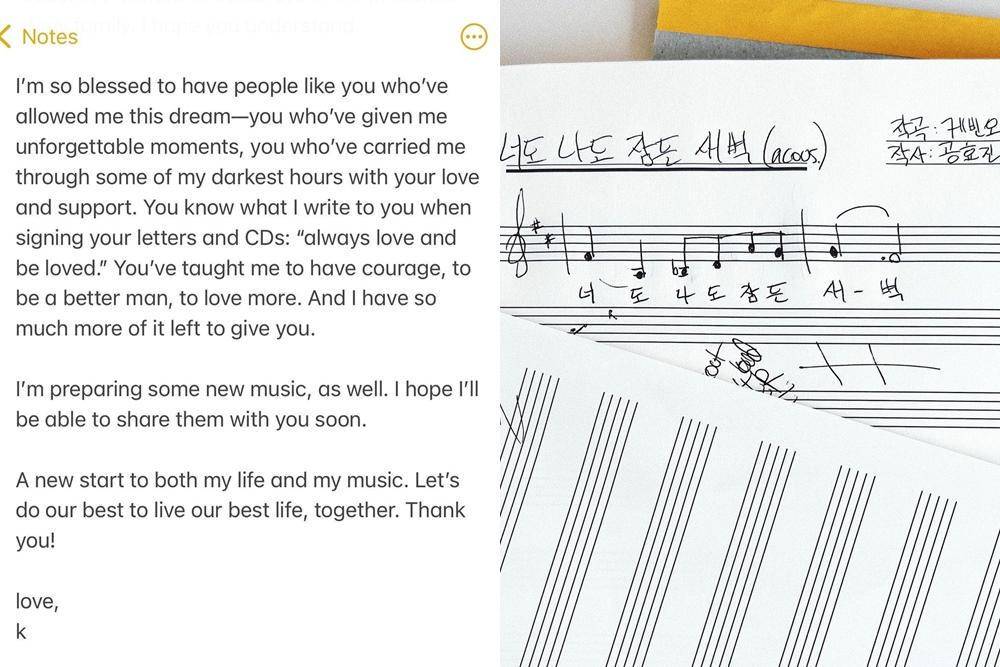 family. I hope you understand.
Notes
I'm so blessed to have people like you who've
allowed me this dream—you who've given me
unforgettable moments, you who've carried me
through some of my darkest hours with your love
and support. You know what I write to you when
signing your letters and CDs: “always love and
be loved.” You've taught me to have courage, to
be a better man, to love more. And I have so
much more of it left to give you.
I'm preparing some new music, as well. I hope I'll
be able to share them with you soon.
A new start to both my life and my music. Let's
do our best to live our best life, together. Thank
you!
love,
k
너도 나도 잠든 새벽 (acous.)
작곡: 케빈오
작사: 공효진
너 도 나 도 잠 든 새 - 벽